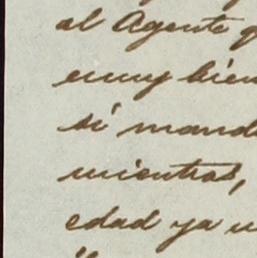 al Agente
muy bien
si mand
mientras,
edad ya